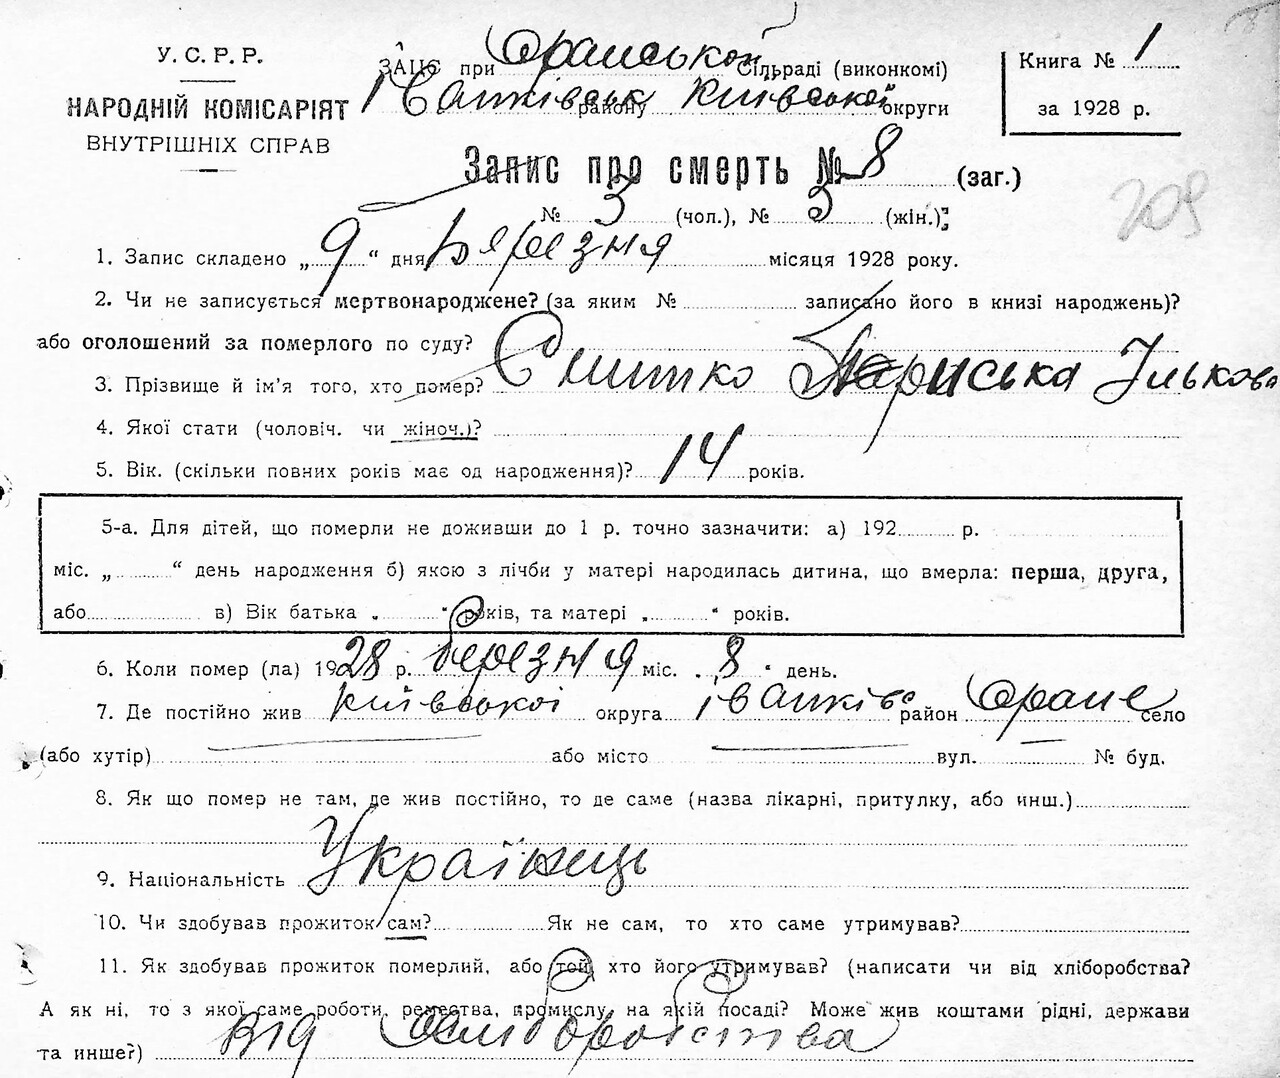 У. С. Р. Р.
НАРОДНІЙ КОМІСАРІЯТ
ВНУТРІШНІХ СПРАВ
ЗАЦС при Оранської Сільраді (виконкомі)
Іванківськ району Київської округи
Книга № 1
за 1928 р.
Запис про смерть № 8 (заг.)
№ 3 (чол.), № 3 (жін.);
209
1. Запис складено „ 9 “ дня Березня місяця 1928 року.
2. Чи не записується мертвонароджене? (за яким № записано його в книзі народжень)?
або оголошений за померлого по суду?
3. Прізвище й ім’я того, хто помер? Єнитко Ільков
4. Якої стати (чоловіч. чи жіноч.)?
5. Вік. (скільки повних років має од народження)? 14 років.
5-а. Для дітей, що померли не доживши до 1 р. точно зазначити: а) 192 р.
міс. „ “ день народження б) якою з лічби у матері народилась дитина, що вмерла: перша, друга,
або в) Вік батька „ “ років, та матері „ “ років.
6. Коли помер (ла) 1928 р. березня міс. „ 8 “ день.
7. Де постійно жив Київської округа Іванків район Оране село
(або хутір) або місто вул. № буд.
8. Як що помер не там, де жив постійно, то де саме (назва лікарні, притулку, або инш.)
9. Національність Українець
10. Чи здобував прожиток сам? Як не сам, то хто саме утримував?
11. Як здобував прожиток померлий, або той, хто його утримував? (написати чи від хліборобства?
А як ні, то з якої саме роботи, ремества, промислу, на якій посаді? Може жив коштами рідні, держави
та инше?) від хліборобства